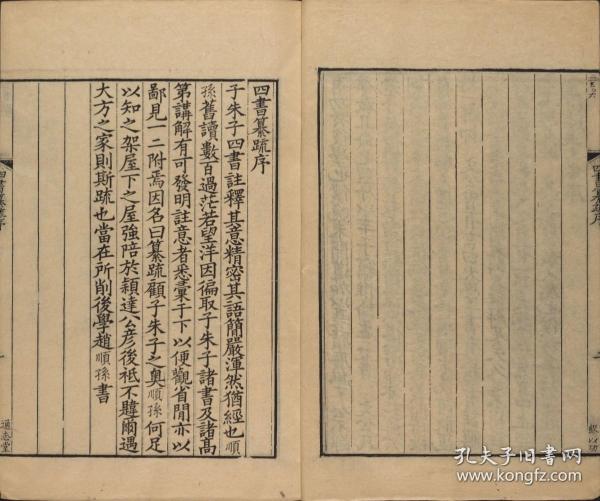 四書纂疏序
子朱子四書註釋其意精密其語簡嚴渾然猶經也順
孫舊讀數百過茫若望洋因徧取子朱子諸書及諸高
第講解有可發明註意者悉彙于下以便觀省間亦以
鄙見一二附焉因名曰纂疏顧子朱子之奧順孫何足
以知之架屋下之屋強陪於穎達公彦後祇不韙爾遇
大方之家則斯疏也當在所削後學趙順孫書
四書纂疏序
通志堂
四書纂疏序
孔夫子旧书网
www.kongfz.com